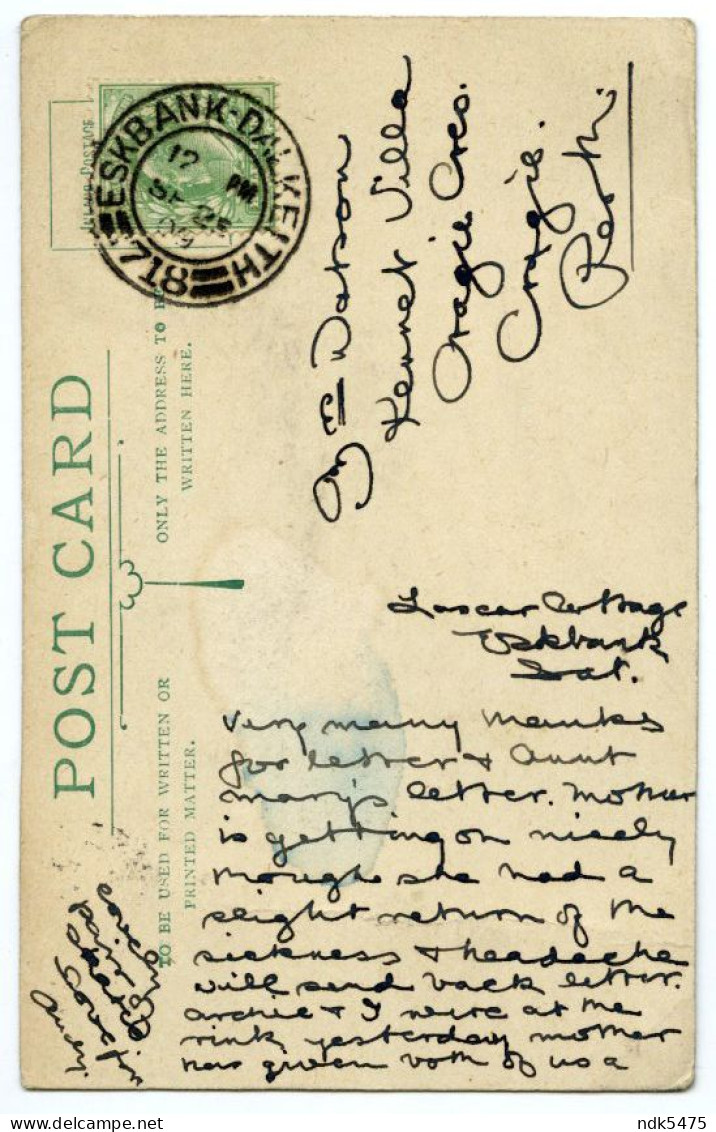 POST CARD
INLAND POSTAGE
ESKBANK-DALKEITH
12 PM
SP 25
09
718
ONLY THE ADDRESS TO BE
WRITTEN HERE.
TO BE USED FOR WRITTEN OR
PRINTED MATTER.
Watson
Kennet Villa
Craigie Cres.
Craigie.
Perth.
Lascar Cottage
Eskbank
Sat.
Very many thanks
for letter & Aunt
Mary's letter. Mother
is getting on nicely
though she had a
slight return of the
sickness & headache
will send back letter.
Archie & I were at the
rink yesterday mother
has given both of us a
pair of
skates
Love from
Andy.
ndk5475